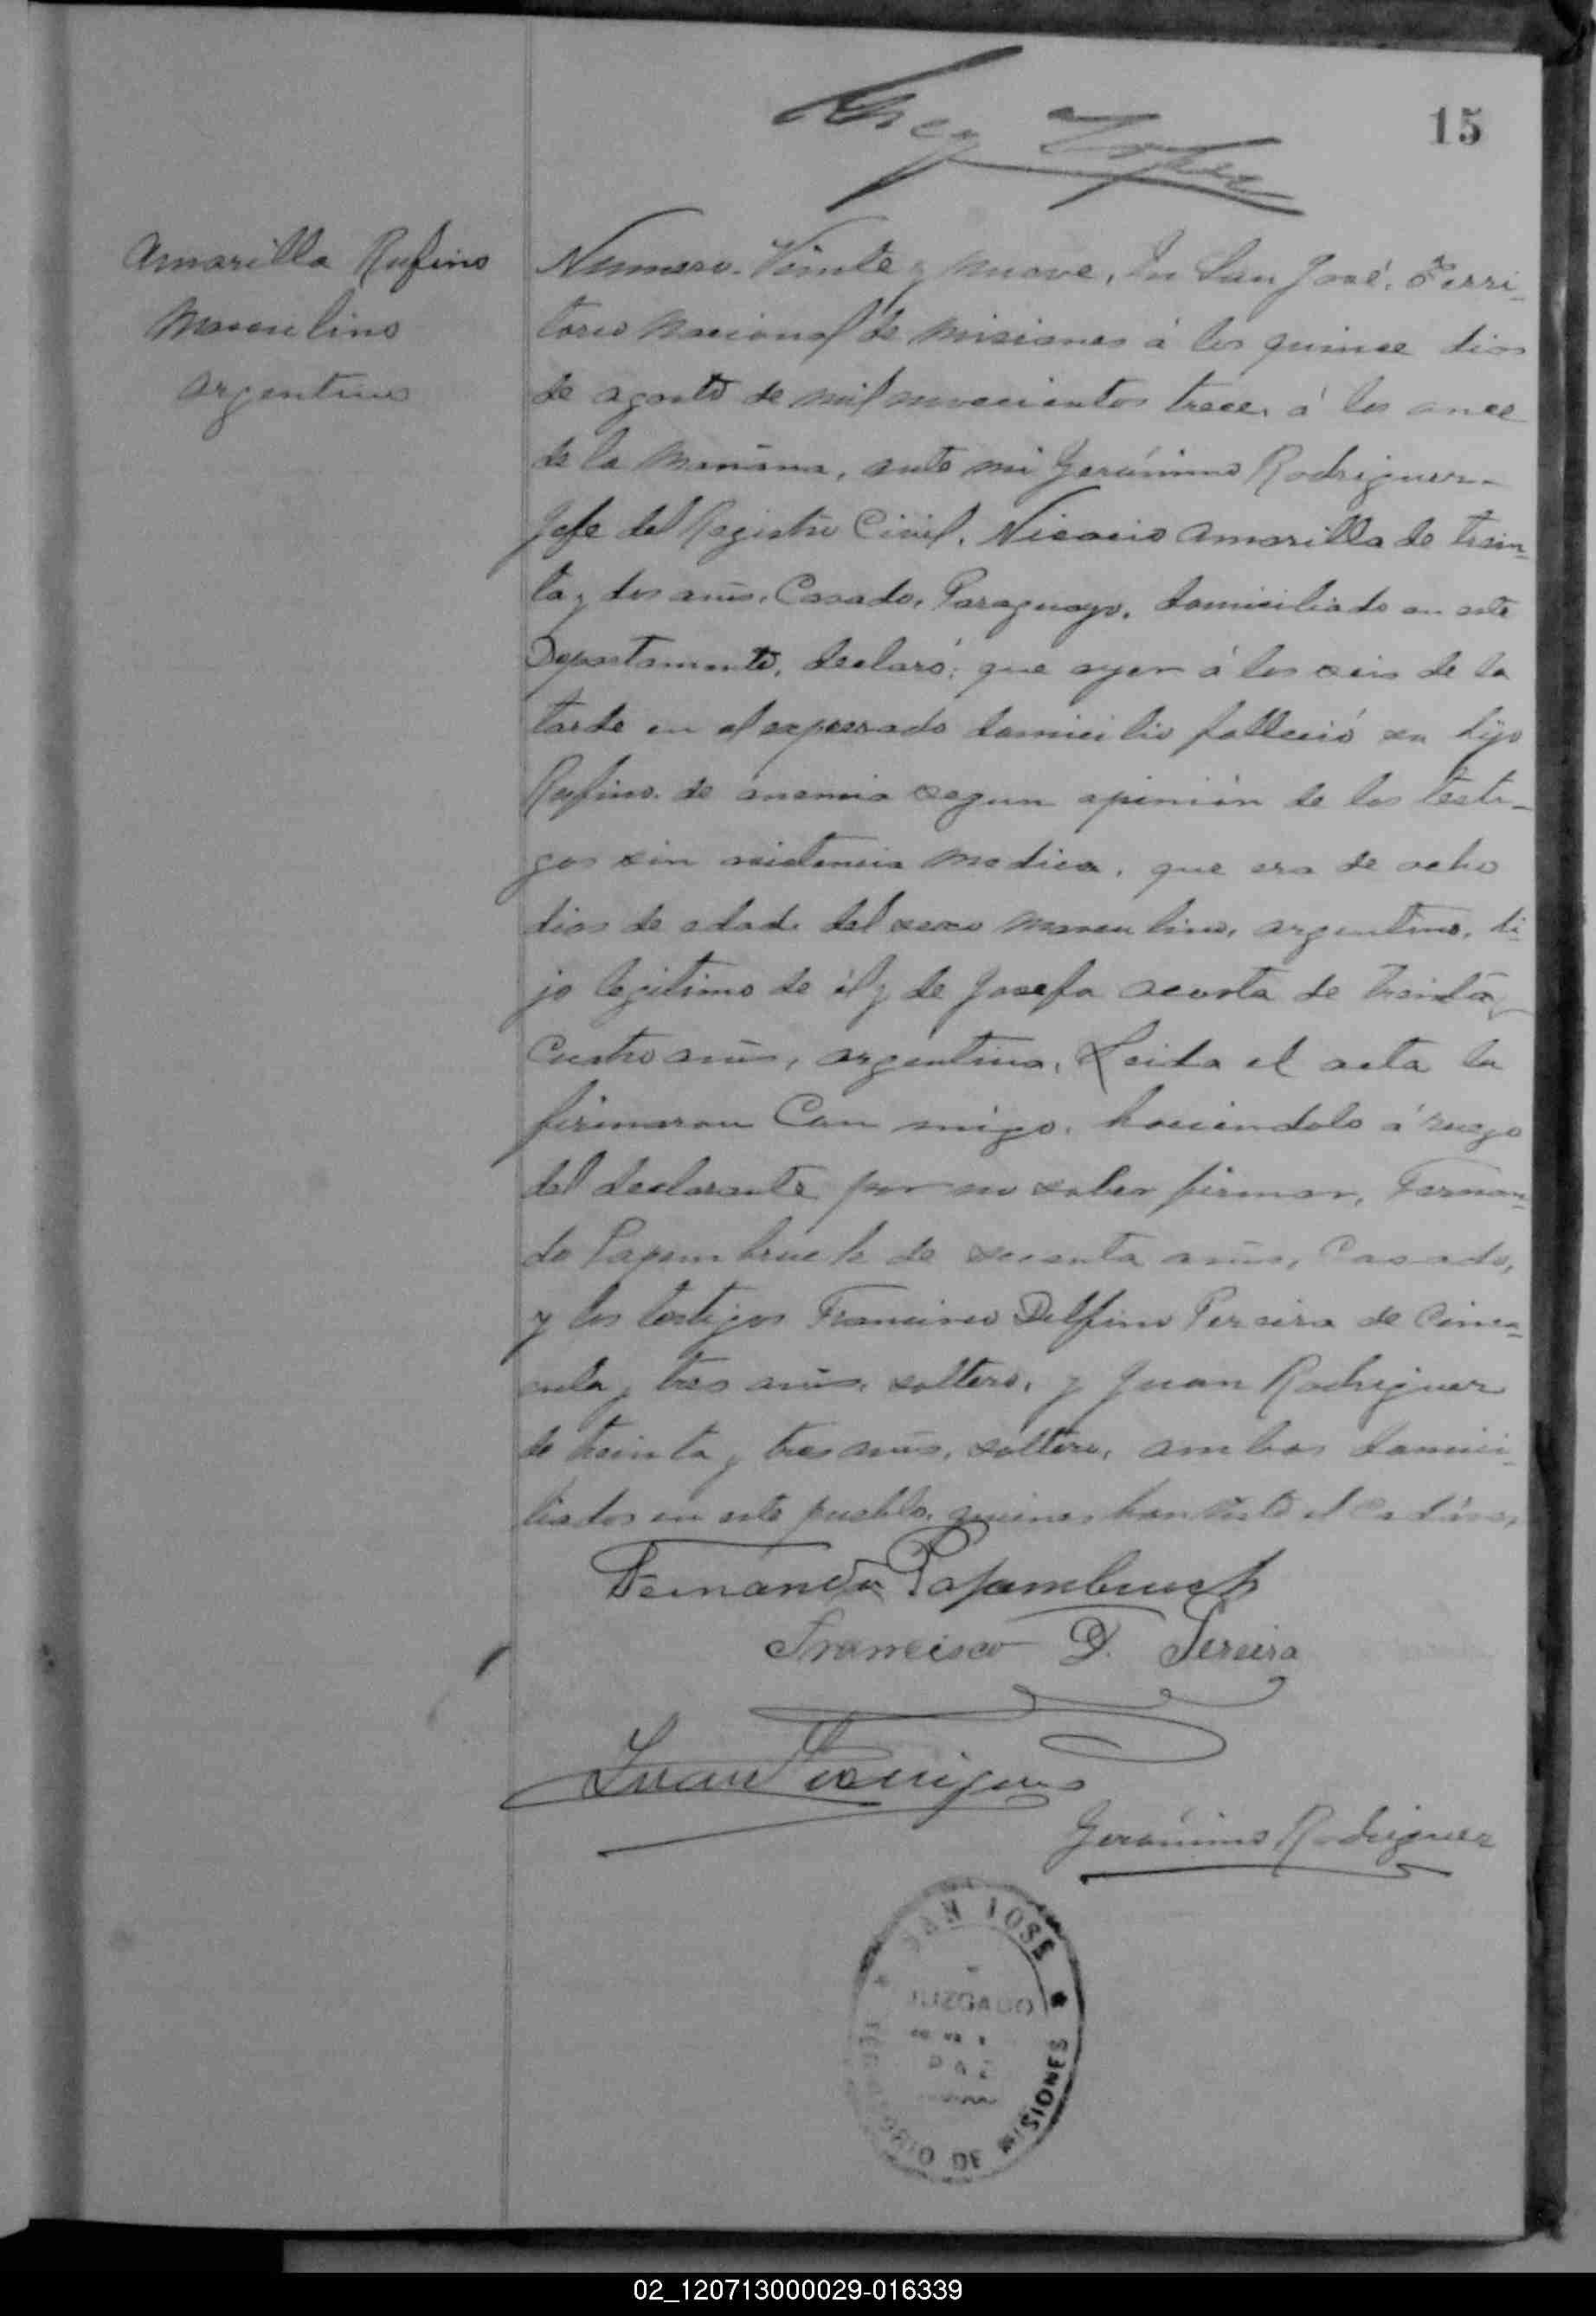 15
Amarilla Rufino
Masculino
Argentino
Numero Veinte y nueve. En San José, Terri-
torio Nacional de Misiones á los quince dias
de agosto de mil novecientos trece, á las once
de la mañana, ante mi Gerónimo Rodriguez
Jefe del Registro Civil, Nicacio Amarilla de trein-
ta y dos años, Casado, Paraguayo, domiciliado en este
Departamento, declaró: que ayer á las seis de la
tarde en el expresado domicilio falleció su hijo
Rufino de anemia segun opinión de los testi-
gos sin asistencia medica, que era de ocho
dias de edad, del sexo masculino, argentino, hi-
jo legitimo de él y de Josefa Acosta de treinta y
cuatro años, argentina, Leida el acta la
firmaron Con migo, haciendolo á ruego
del declarante por no saber firmar, Fernan-
do Papembruch de años, Casado,
y los testigos Francisco Delfino Pereira de Cincu-
enta y tres años, soltero, y Juan Rodriguez
de treinta y tres años, soltero, ambos domici-
liados en este pueblo, quienes han visto el cadáver
Fernando Papambruch
Francisco D. Pereira
Juan Rodrigues
Gerónimo Rodriguez
SAN JOSE
JUZGADO
DE
PAZ
TERRITORIO DE MISIONES
02_120713000029-016339